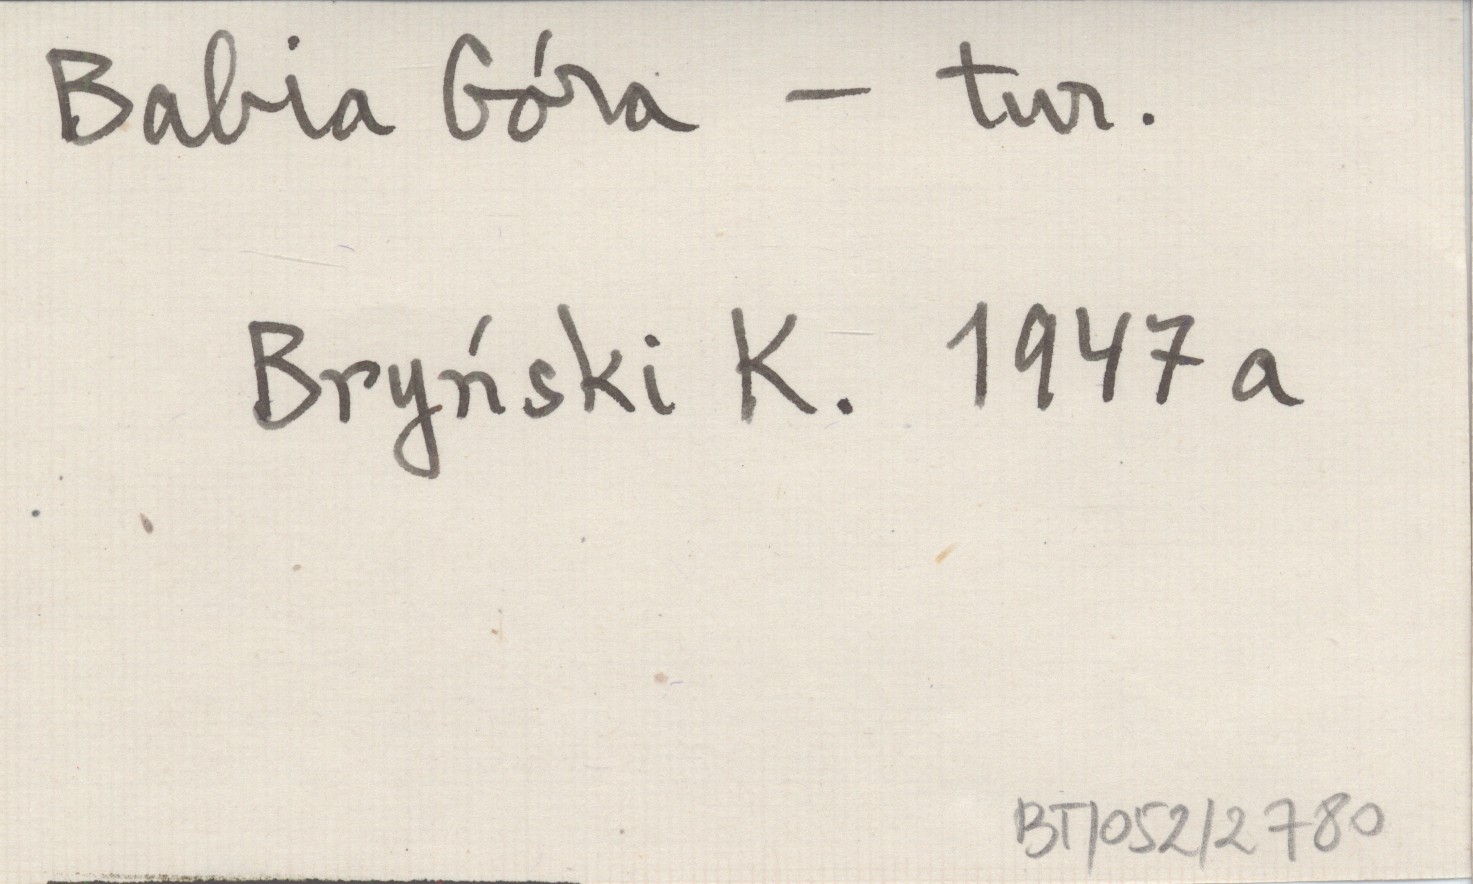 Babia Góra – tur.
Bryński K. 1947a
BT/052/2780